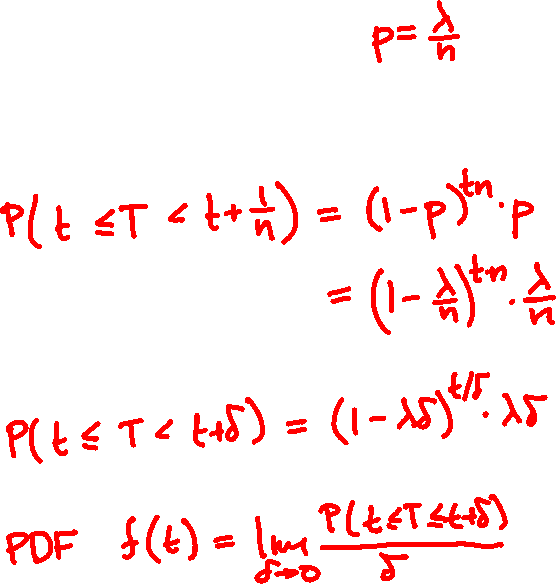 p = λ/n
P(t ≤ T < t + 1/n) = (1-p)^{tn} · p
= (1 - λ/n)^{t·n} · λ/n
P(t ≤ T < t+δ) = (1 - λδ)^{t/δ} · λδ
PDF f(t) = lim_{δ→0} P(t ≤ T ≤ t+δ)/δ